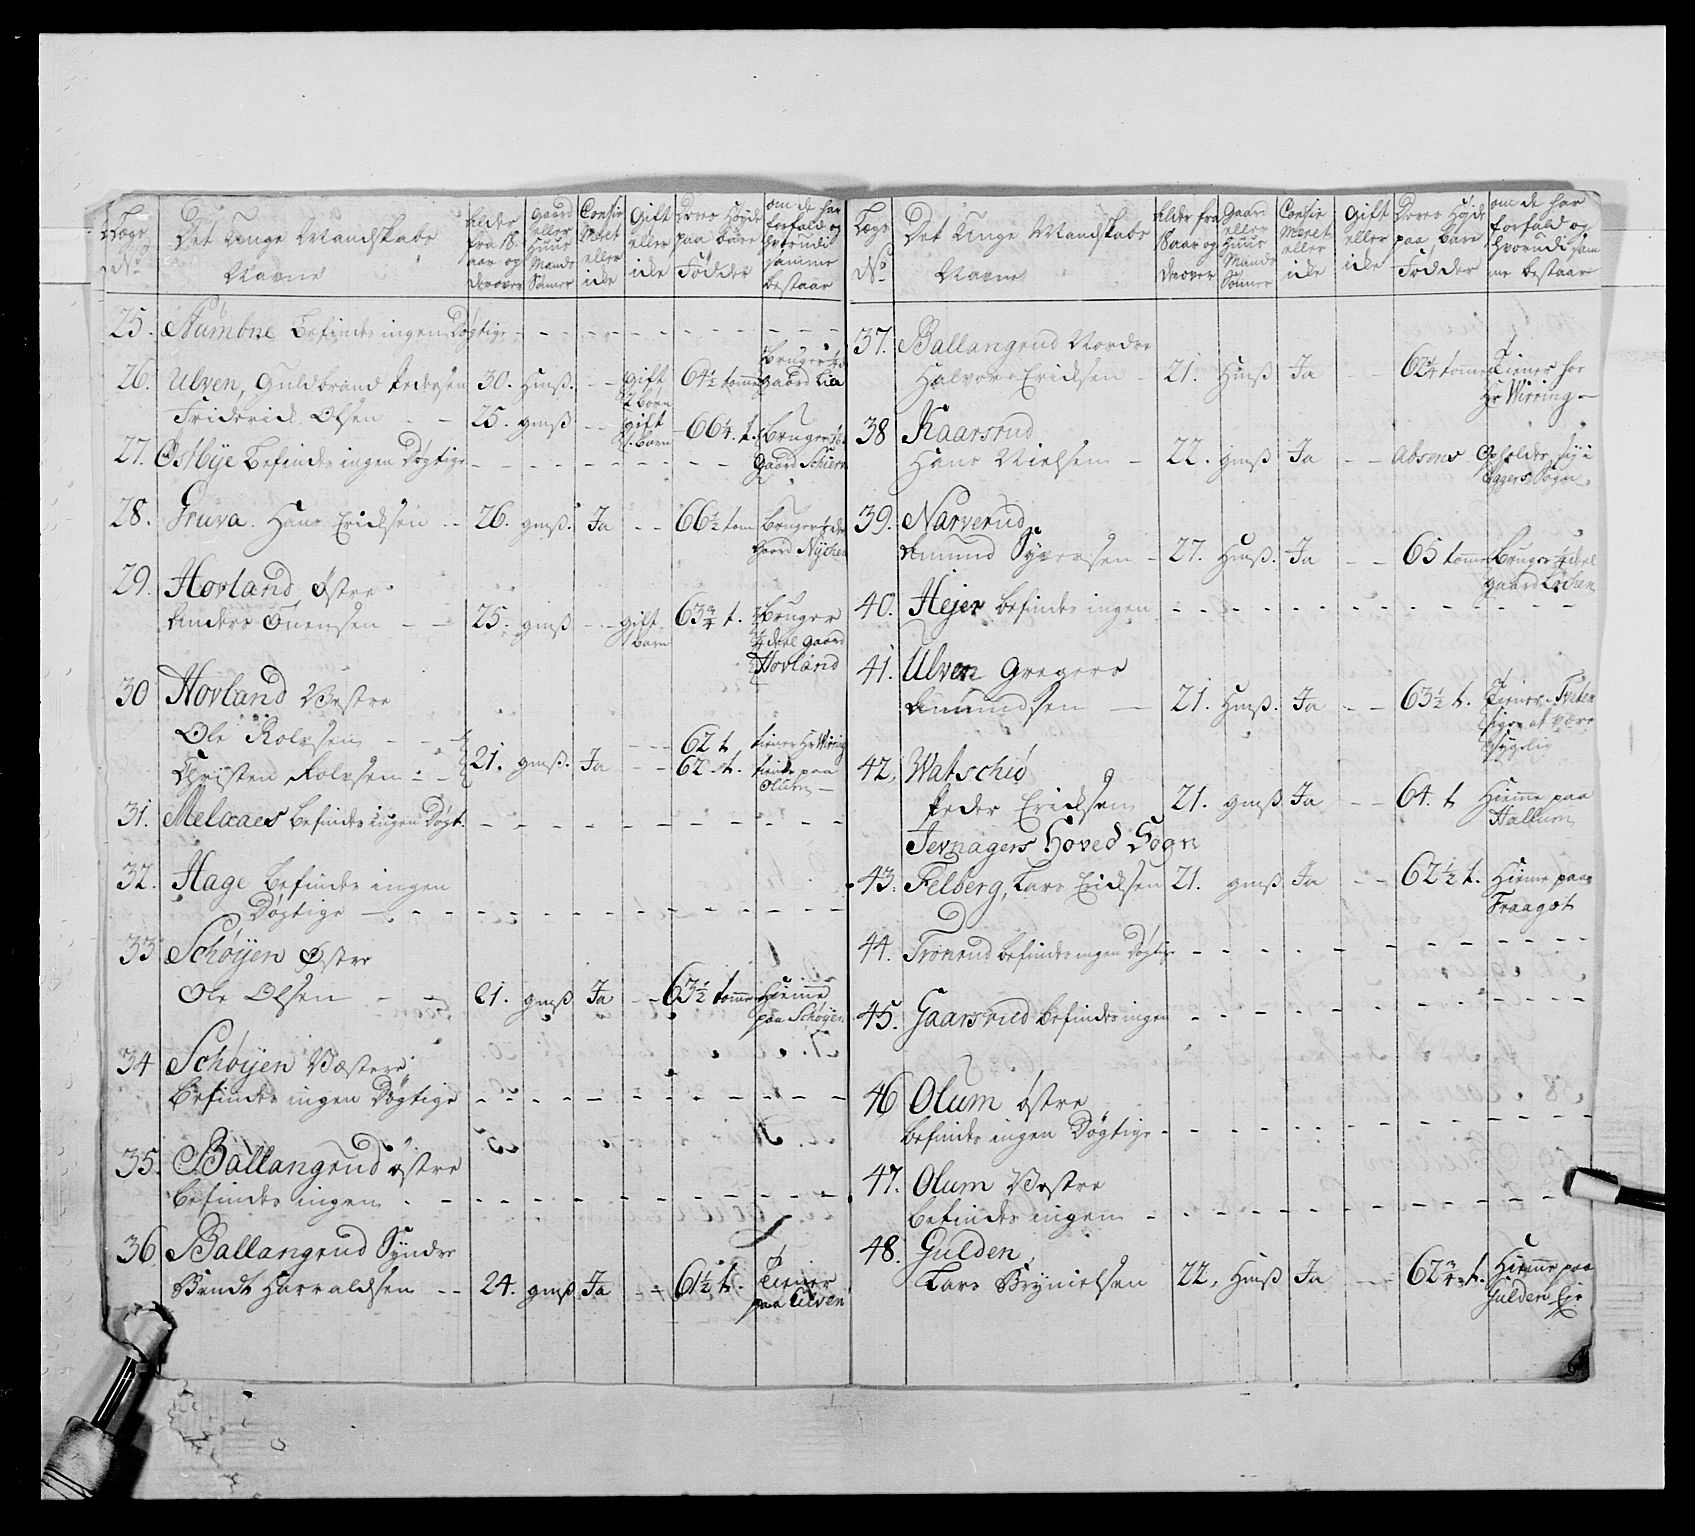 Lægs No
Det Unge Mandskabs Navne
Alder fra 18 aar og derover
Gaard eller Huus Mands Sønner
Confirmeret eller icke
Gift eller icke
Deres Høyde paa bare Födder
om de har forfald og hvorudi samme bestaar
25. Numone befindes ingen Døgtige
26. Ulven, Guldbrand Pedersen 30. Hmß. Gift 2 børn 64½ tomme Bruger gaard Lia
Friderich Olsen 25. gmß gift 1. barn 66¼. t. Bruger gaard Schiern
27. Østbye befindes ingen Døgtige
28. Gruva. Hans Ericksen 26. gmß. Ja 66½ tom Bruger gaard Nÿchen
29. Hovland Østre
Anders Önensen 25. gmß gift 1 barn 63¾ t. Bruger ¼ deel gaard Hovland
30 Hovland Westre
Ole Rolvsen 62 t tiener Hr Wirring
Christen Rolvsen 21. gmß. Ja 62 t. tiener paa Olum
31. Melaaes befindes ingen Døgt.
32. Hage befindes ingen
Døgtige
33 Schöÿen Østre
Ole Olsen 21. gmß Ja 63½ tomme Hiemme paa Schøÿen
34 Schöÿen Wæstere
befindes ingen Døgtige
35. Ballangrud østre
befindes ingen
36 Ballangrud Syndre
Bendt Harraldsen 24. gmß Ja 61½ t. Tiener paa Ulven
Lægs No
Det Unge Mandskabs Navne
Alder fra 18 aar og derover
Gaard eller Huus Mands Sönner
Confirmeret eller icke
Gift eller icke
Deres Høyde paa bare Födder
om de har forfald og hvorudi samme bestaar
37. Ballangrud Nordre
Halvor Ericksen 21. Hmß Ja 62¼ tomme Tiener hos Hr Wirring
38 Kaarsrud
Hans Nielsen 22. gmß Ja Absens Opholder sig i Eggers Sogn
39. Narverud
Amund Syversen 27. Hmß. Ja 65 tomme Bruger ¼ deel gaard Lychen
40. Hejer befindes ingen
41. Ulven Gregers
Amundsen 21. Hmß. Ja 63½ t. Tiener Tveten siger at være Sygelig
42, Watschiø
Peder Ericksen 21. gmß Ja 64. t Hiemme paa Hallum
Jevnagers Hoved Sogn
43. Felberg, Lars Ericksen 21. gmß Ja 62½ t. Hieme paa Fraagot
44. Tronrud befindes ingen Døgtige
45. Gaarsrud befindes ingen
46 Olum østre
befindes ingen Døgtige
47. Olum Westre
befindes ingen
48. Gulden
Lars Brynielsen 22, Hmß Ja 62¾ t. Hiemme paa Gulden Eje